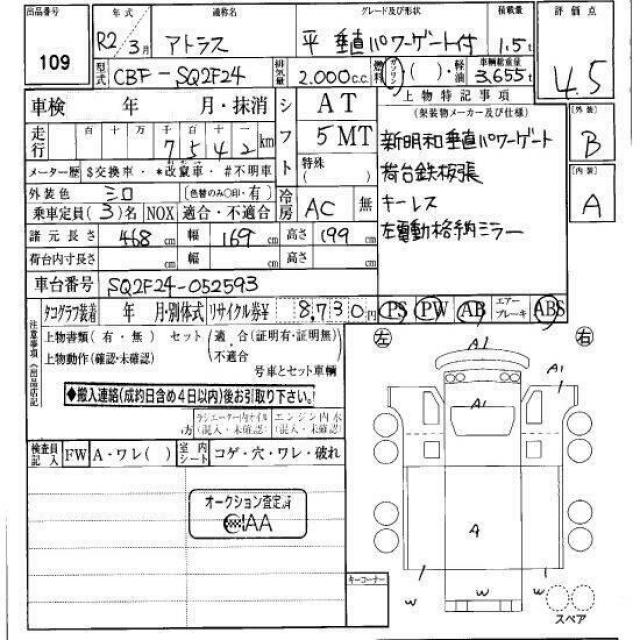 出品番号 年式 通称名 グレード及び形状 積載量 評価点
109 R2/3月 アトラス 平 垂直パワーゲート付 1.5t 4.5
型式 CBF-SQ2F24 排気量 2.000c.c. 燃料 ガソリン・( )・軽油 車輌総重量 3,655t
車検 年 月・抹消 シフト AT 上物特記事項
(架装物メーカー及び仕様) [外装]
走行 百 十 万 千 百 十 一 5MT 新明和垂直パワーゲート B
7542km 特殊( ) 荷台鉄板張 [内装]
メーター歴 $交換車・*改竄車・#不明車 キーレス A
外装色 シロ (色替のみ○印・有) 冷房 AC 無 左電動格納ミラー
乗車定員(3)名 NOX 適合・不適合
諸元長さ 468cm 幅 169cm 高さ199cm
荷台内寸長さ cm 幅 cm 高さ cm
車台番号 SQ2F24-052593
タコグラフ装着 年 月・別体式 リサイクル券¥ 8,730円 PS PW AB エアーブレーキ ABS
注意事項(出品店記
上物書類(有・無) セット(適合(証明有・証明無)
上物動作(確認・未確認) 不適合
号車とセット車輌
◆搬入連絡(成約日含め4日以内)後お引取り下さい。
ラジエーター内オイル エンジン内水
(混入・未確認) (混入・未確認)
検査員記入 FW A・ワレ( ) 室内シート コゲ・穴・ワレ・破れ
オークション査定済
IAA
キーコーナー
左 右
A1
A1
A1
A
w w w
スペア